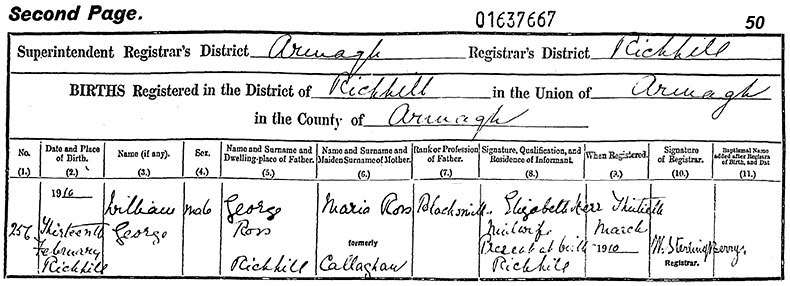 Second Page.
01637667
50
Superintendent Registrar's District Armagh Registrar's District Richhill
BIRTHS Registered in the District of Richhill in the Union of Armagh
in the County of Armagh
No. (1.)
Date and Place of Birth. (2.)
Name (if any). (3.)
Sex. (4.)
Name and Surname and Dwelling-place of Father. (5.)
Name and Surname and Maiden Surname of Mother. (6.)
Rank or Profession of Father. (7.)
Signature, Qualification, and Residence of Informant. (8.)
When Registered. (9.)
Signature of Registrar. (10.)
Baptismal Name added after Registra of Birth, and Dat (11.)
256
1910 Thirteenth February Richhill
William George
male
George Ross Richhill
Maria Ross formerly Callaghan
Blacksmith
Elizabeth Kerr Midwife Present at birth Richhill
Thirtieth March 1910
W. Sterling Berry. Registrar.